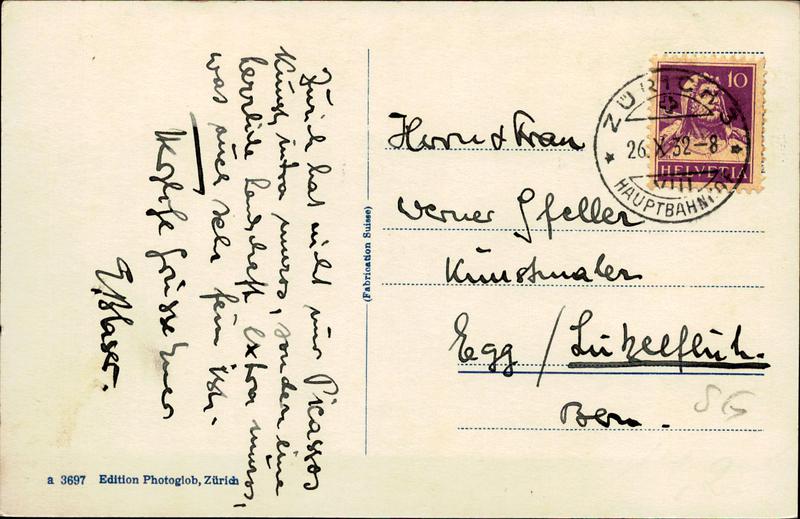 Zürich hat nicht nur Picassos
Kunst, intra muros, sondern eine
herrliche Landschaft extra muros,
was auch sehr fein ist.
Herzliche Grüsse Euer
E. Blaser.
a 3697 Edition Photoglob, Zürich
(Fabrication Suisse)
Herrn & Frau
Werner Gfeller
Kunstmaler
Egg / Lützelflüh.
Bern.
SG
10
HELVETIA
ZÜRICH 3
26.X.32-8
HAUPTBAHNHOF